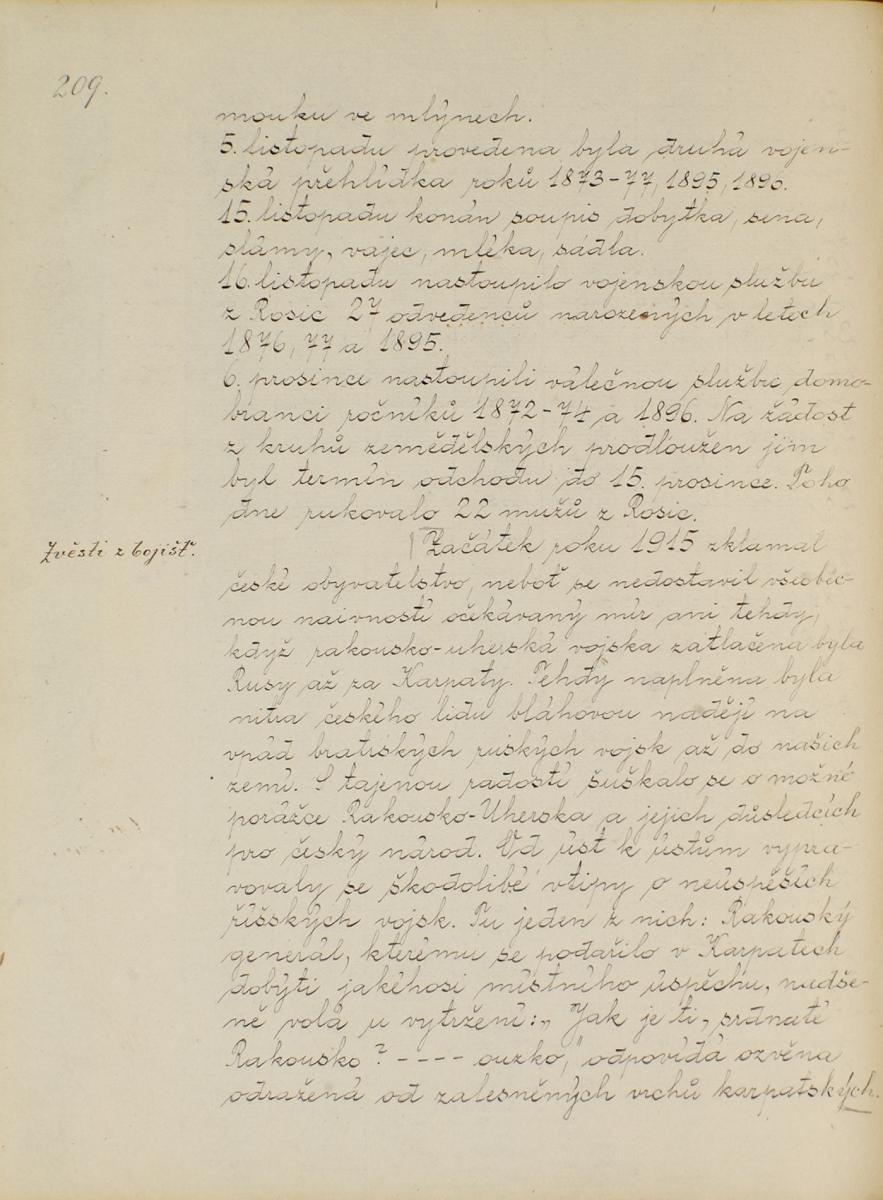 209.
mouku ve mlýnech.
5. listopadu provedena byla druhá vojen-
ská přehlídka roků 1873-77, 1895, 1896.
15. listopadu konán soupis dobytka, sena,
slámy, vajec, mléka, sádla.
16. listopadu nastoupilo vojenskou službu
z Rosic 27 odvedenců narozených v letech
1876, 77 a 1895.
6. prosince nastoupili válečnou službu domo-
branci ročníků 1872-74 a 1896. Na žádost
z kruhů zemědělských prodloužen jim
byl termín odchodu do 15. prosince. Toho
dne rukovalo 22 mužů z Rosic.
Zvěsti z bojišť.
Začátek roku 1915 zklamal
české obyvatelstvo, neboť se nedostavil všeobec-
nou naivností očekávaný mír ani tehdy,
když rakousko-uherská vojska zatlačena byla
Rusy až za Karpaty. Tehdy naplněna byla
nitra českého lidu bláhovou nadějí na
vpád bratrských ruských vojsk až do našich
zemí. S tajenou radostí šuškalo se o možné
porážce Rakousko-Uherska a jejich důsledcích
pro český národ. Od úst k ústům vypra-
vovaly se škodolibé vtipy o neúspěších
říšských vojsk. Tu jeden z nich: Rakouský
generál, kterému se podařilo v Karpatech
dobýti jakéhosi místního úspěchu, nadše-
ně volá u vytržení: „Jak je ti, srdnaté
Rakousko? - - - - ouzko,“ odpovídá ozvěna
odražená od zalesněných vrchů karpatských.